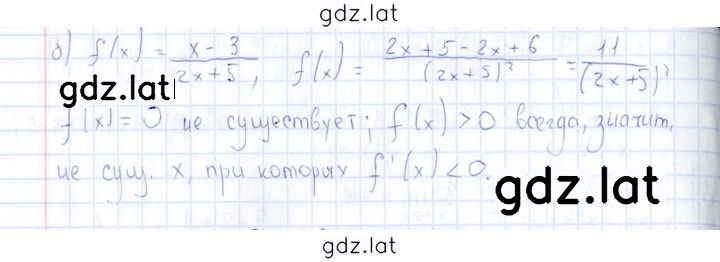 gdz.lat
б) f(x) = x - 3 / 2x + 5, f(x) = 2x + 5 - 2x + 6 / (2x + 5)² = 11 / (2x + 5)²
gdz.lat
f(x) = 0 не существует; f(x) > 0 всегда, значит,
не сущ. x, при которых f'(x) < 0.
gdz.lat
gdz.lat